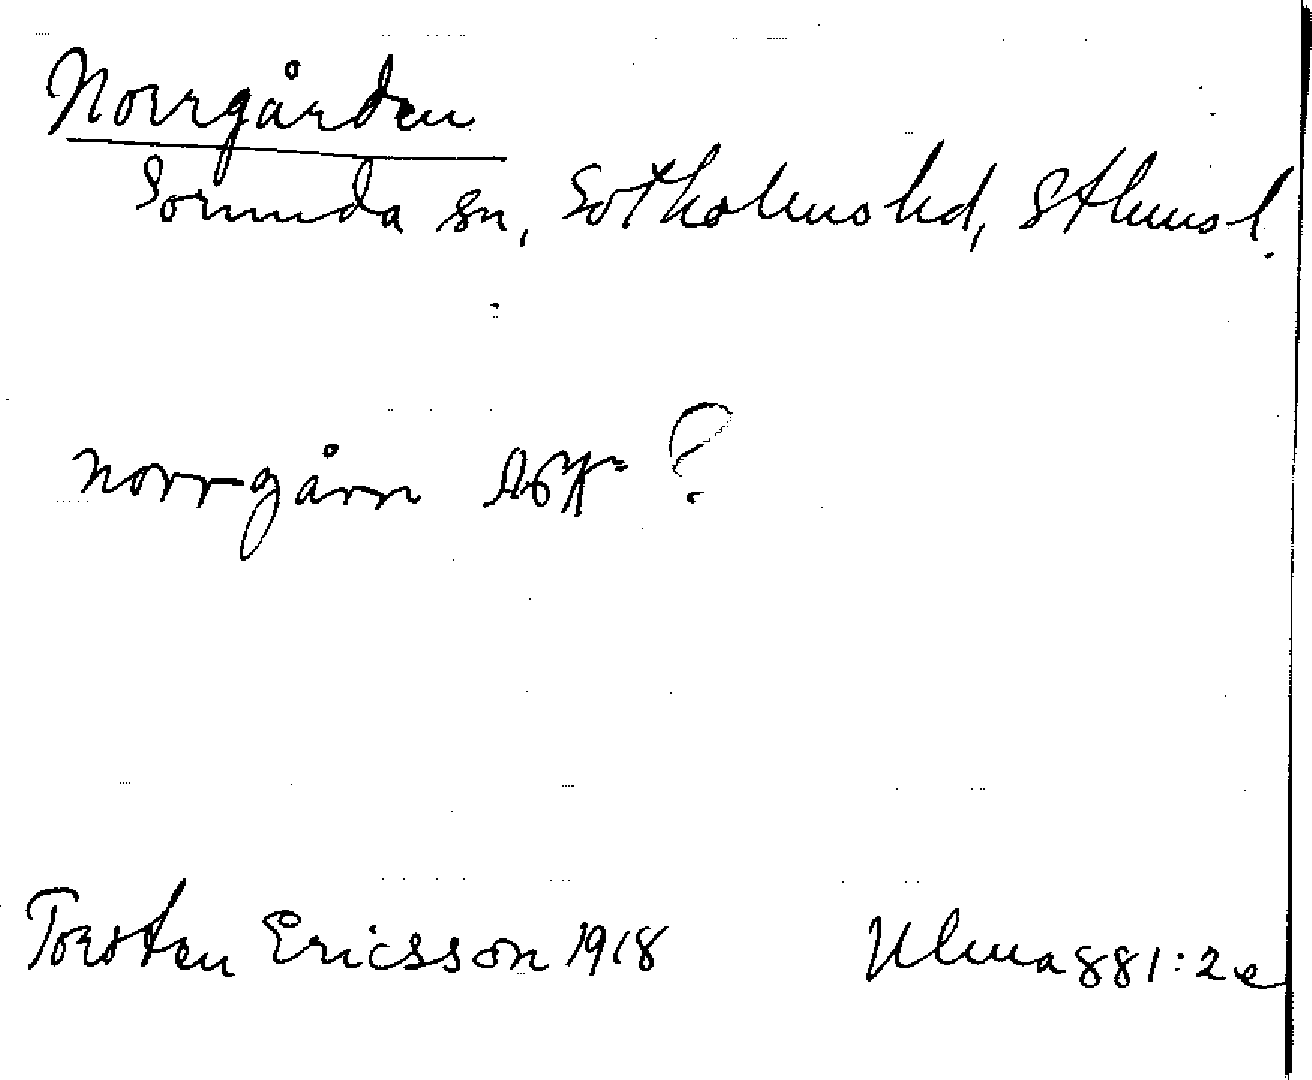 Norrgården
Sorunda sn, Sotholms hd, Sthms l.
norrgårn ?
Torsten Ericsson 1918 Ulma 881:2e